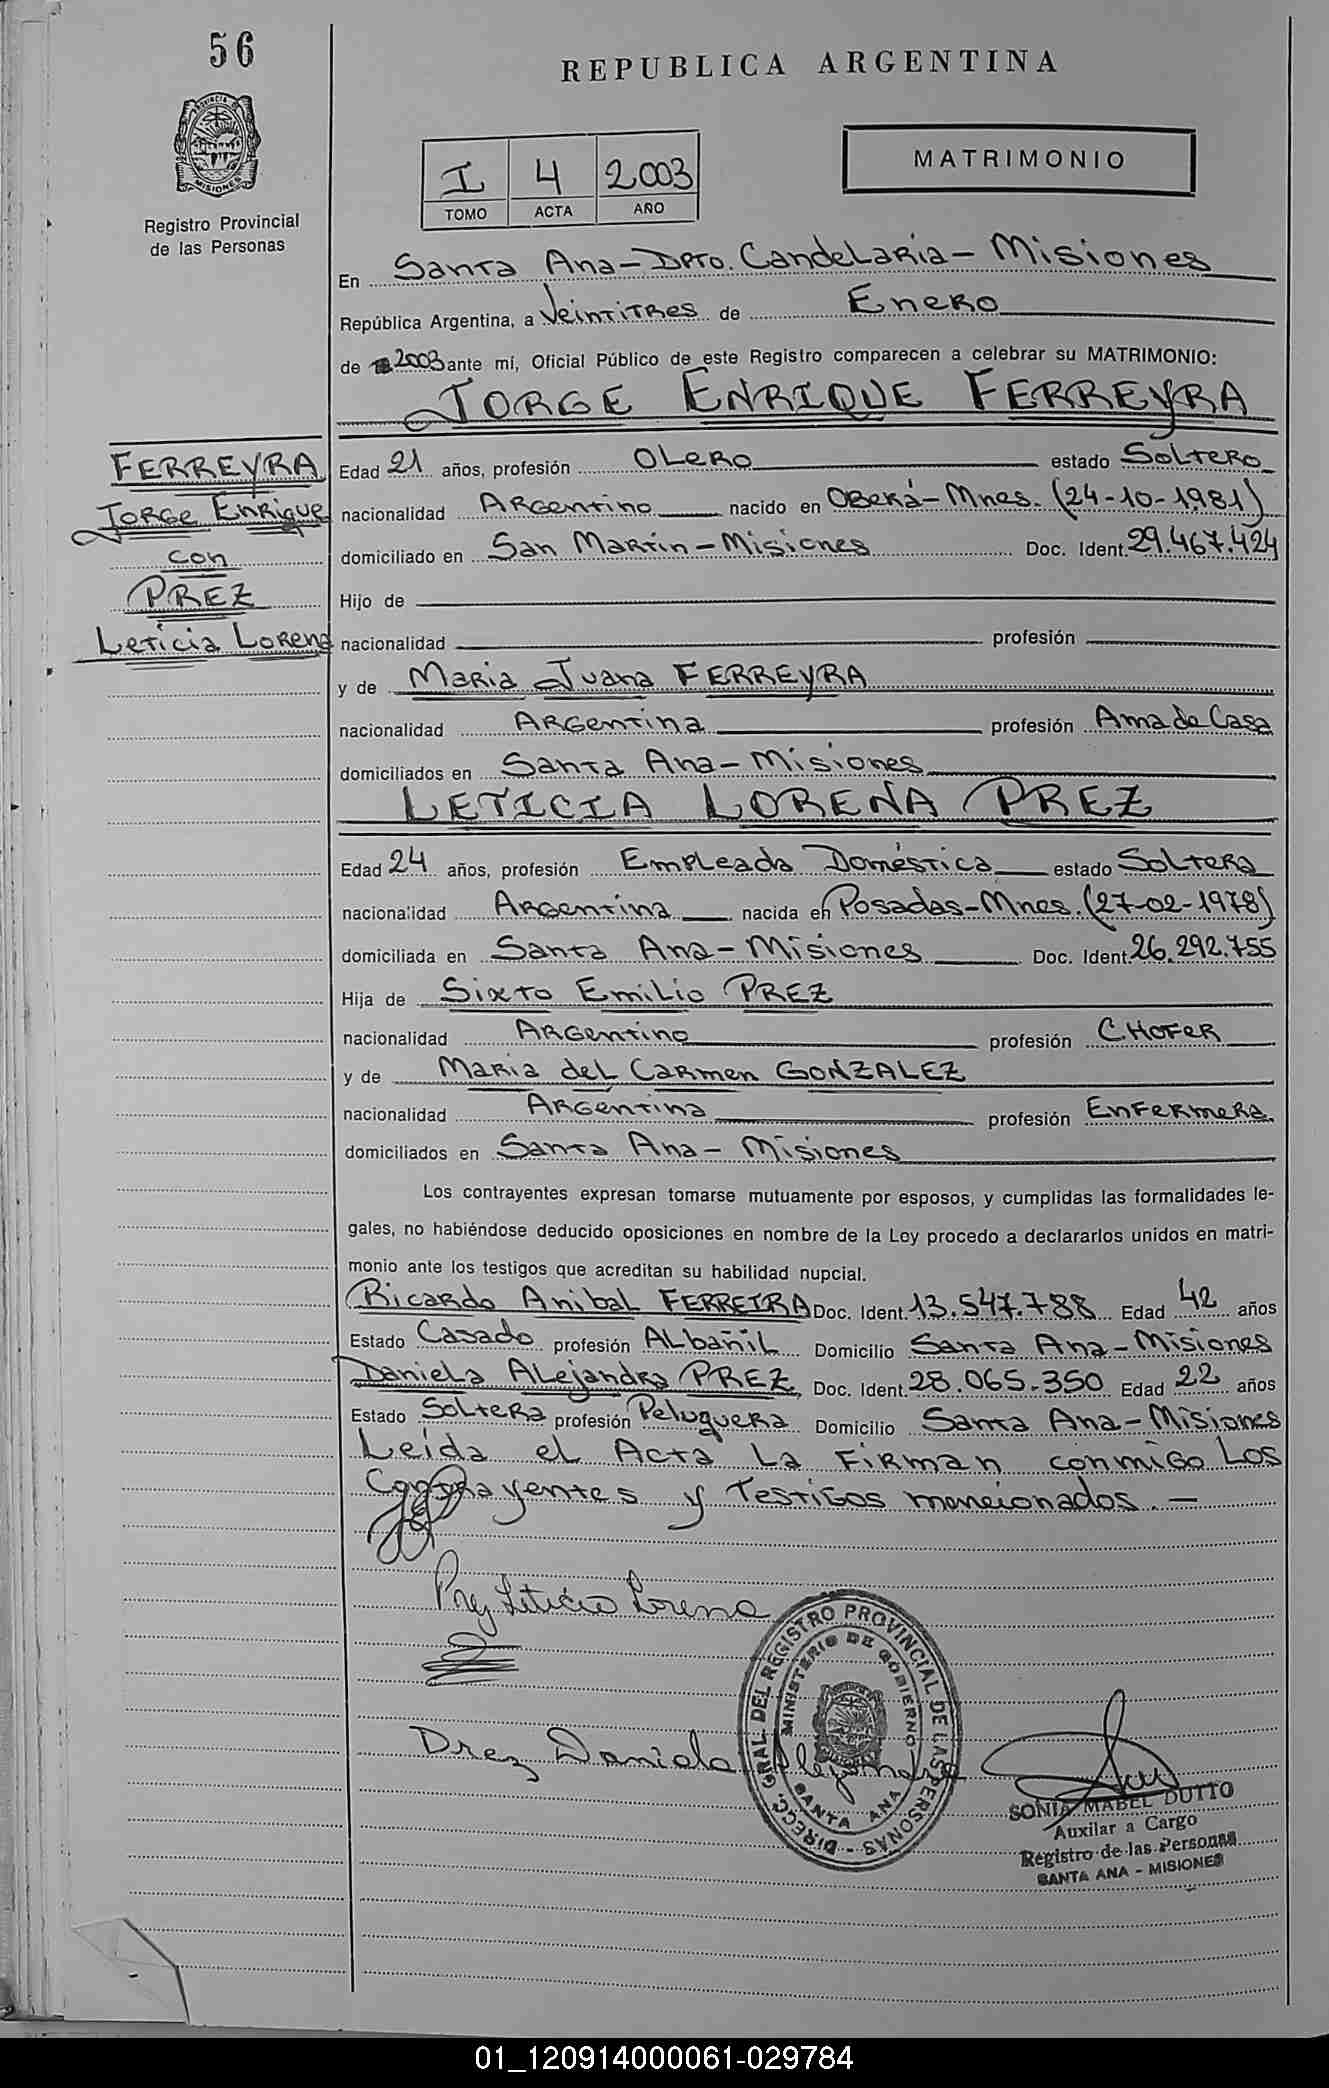 56
REPUBLICA ARGENTINA
PROVINCIA DE
MISIONES
Registro Provincial
de las Personas
I 4 2003
TOMO ACTA AÑO
MATRIMONIO
En Santa Ana-Dpto. Candelaria-Misiones
República Argentina, a Veintitres de Enero
de 2003 ante mí, Oficial Público de este Registro comparecen a celebrar su MATRIMONIO:
JORGE ENRIQUE FERREYRA
FERREYRA
Jorge Enrique
con
PREZ
Leticia Lorena
Edad 21 años, profesión Olero estado Soltero
nacionalidad Argentino nacido en Oberá-Mnes. (24-10-1981)
domiciliado en San Martín-Misiones Doc. Ident. 29.467.424
Hijo de
nacionalidad profesión
y de Maria Juana FERREYRA
nacionalidad Argentina profesión Ama de Casa
domiciliados en Santa Ana-Misiones
LETICIA LORENA PREZ
Edad 24 años, profesión Empleada Doméstica estado Soltera
nacionalidad Argentina nacida en Posadas-Mnes. (27-02-1978)
domiciliada en Santa Ana-Misiones Doc. Ident. 26.292.755
Hija de Sixto Emilio PREZ
nacionalidad Argentino profesión Chofer
y de Maria del Carmen GONZALEZ
nacionalidad Argentina profesión Enfermera
domiciliados en Santa Ana-Misiones
Los contrayentes expresan tomarse mutuamente por esposos, y cumplidas las formalidades le-
gales, no habiéndose deducido oposiciones en nombre de la Ley procedo a declararlos unidos en matri-
monio ante los testigos que acreditan su habilidad nupcial.
Ricardo Anibal FERREIRA Doc. Ident. 13.547.788 Edad 42 años
Estado Casado profesión Albañil Domicilio Santa Ana-Misiones
Daniela Alejandra PREZ, Doc. Ident. 28.065.350 Edad 22 años
Estado Soltera profesión Peluquera Domicilio Santa Ana-Misiones
Leída el Acta la firman conmigo los
Contrayentes y Testigos mencionados.-
Prez Leticia Lorena
Prez Daniela Alejandra
DIRECC. GRAL. DEL REGISTRO PROVINCIAL DE LAS PERSONAS
MINISTERIO DE GOBIERNO
SANTA ANA
SONIA MABEL DUTTO
Auxilar a Cargo
Registro de las Personas
SANTA ANA - MISIONES
01_120914000061-029784